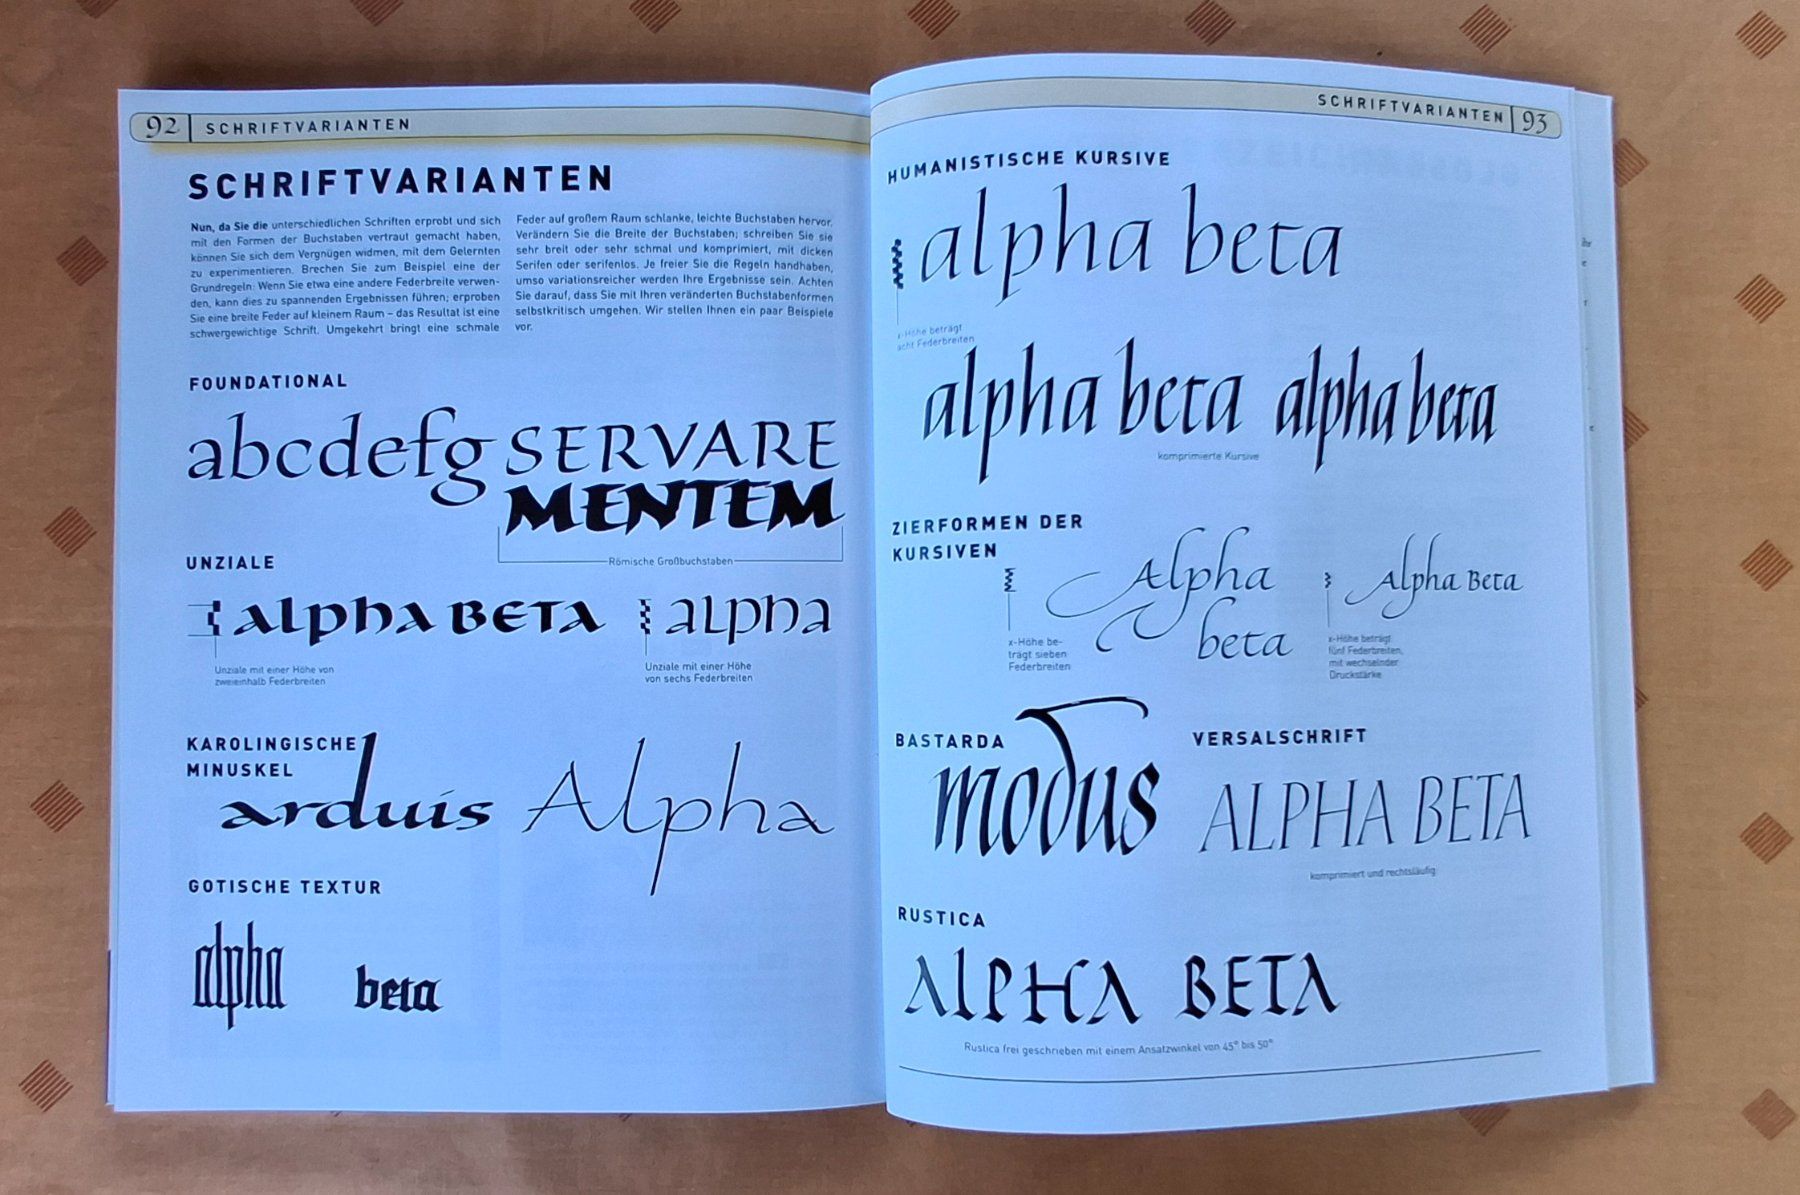 92 SCHRIFTVARIANTEN
SCHRIFTVARIANTEN
Nun, da Sie die unterschiedlichen Schriften erprobt und sich
mit den Formen der Buchstaben vertraut gemacht haben,
können Sie sich dem Vergnügen widmen, mit dem Gelernten
zu experimentieren. Brechen Sie zum Beispiel eine der
Grundregeln: Wenn Sie etwa eine andere Federbreite verwen-
den, kann dies zu spannenden Ergebnissen führen; erproben
Sie eine breite Feder auf kleinem Raum – das Resultat ist eine
schwergewichtige Schrift. Umgekehrt bringt eine schmale
Feder auf großem Raum schlanke, leichte Buchstaben hervor.
Verändern Sie die Breite der Buchstaben; schreiben Sie sie
sehr breit oder sehr schmal und komprimiert, mit dicken
Serifen oder serifenlos. Je freier Sie die Regeln handhaben,
umso variationsreicher werden Ihre Ergebnisse sein. Achten
Sie darauf, dass Sie mit Ihren veränderten Buchstabenformen
selbstkritisch umgehen. Wir stellen Ihnen ein paar Beispiele
vor.
FOUNDATIONAL
abcdefg SERVARE
MENTEM
Römische Großbuchstaben
UNZIALE
alpha BETA
alpha
Unziale mit einer Höhe von
zweieinhalb Federbreiten
Unziale mit einer Höhe
von sechs Federbreiten
KAROLINGISCHE
MINUSKEL
arduis
Alpha
GOTISCHE TEXTUR
alpha
beta
SCHRIFTVARIANTEN 93
HUMANISTISCHE KURSIVE
alpha beta
x-Höhe beträgt
acht Federbreiten
alpha beta alpha beta
komprimierte Kursive
ZIERFORMEN DER
KURSIVEN
Alpha
beta
x-Höhe be-
trägt sieben
Federbreiten
Alpha Beta
x-Höhe beträgt
fünf Federbreiten,
mit wechselnder
Druckstärke
BASTARDA
modus
VERSALSCHRIFT
ALPHA BETA
komprimiert und rechtsläufig
RUSTICA
AlPHA BETA
Rustica frei geschrieben mit einem Ansatzwinkel von 45° bis 50°